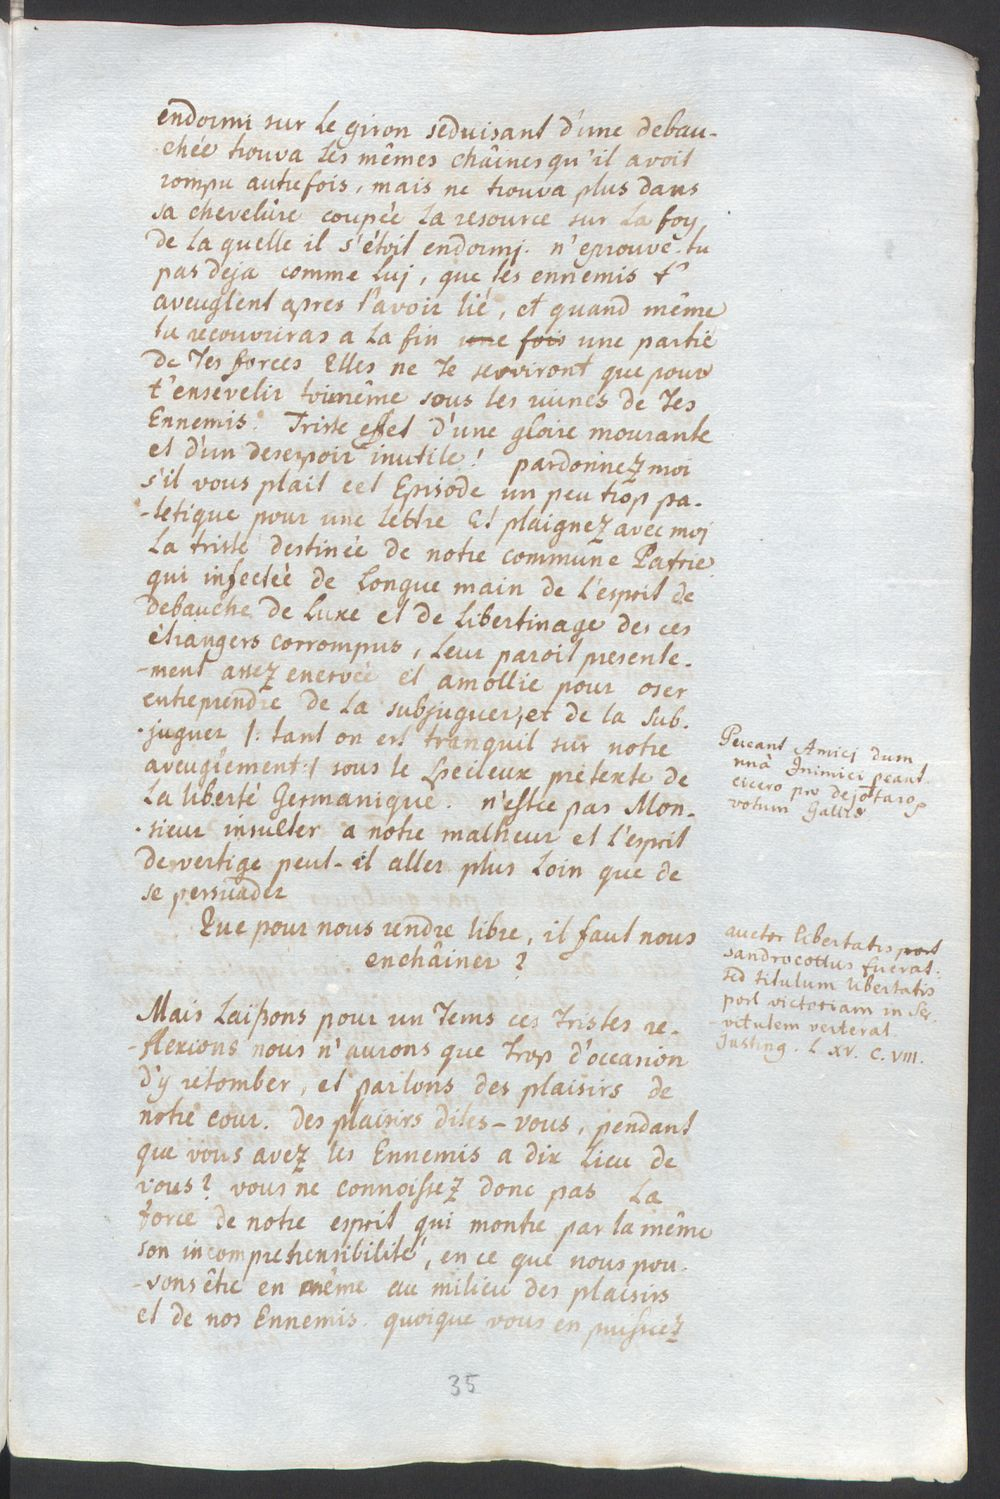 endormi sur le giron seduisant d'une debau-
chée trouva les mêmes chaînes qu'il avoit
rompu autrefois, mais ne trouva plus dans
sa chevelûre coupée la resource sur la foy
de la quelle il s'étoit endormi. n'eprouve-tu
pas deja comme luj, que tes ennemis t'
aveuglent apres t'avoir lié, et quand même
tu recouvriras a la fin une fois une partie
de Tes forces Elles ne Te serviront que pour
t'ensevelir toimême sous les ruines de Tes
Ennemis. Triste effet d'une gloire mourante
et d'un desespoir inutile! pardonnez moi
s'il vous plait cet Episode un peu trop pa-
-tetique pour une lettre Et plaignez avec moj
La triste destinée de notre commune Patrie
qui infectée de longue main de l'esprit de
debauche de Luxe et de Libertinage des ces
étrangers corrompus, Leur paroit presente-
-ment assez enervée et amollie pour oser
entreprendre de la subjuguer, et de la sub-
-juguer /: tant on est tranquil sur notre
aveuglement :/ sous le specieux pretexte de
La liberté Germanique. n'estce pas Mon-
-sieur insulter a notre malheur et l'esprit
de vertige peut-il aller plus loin que de
se persuader
Que pour nous rendre libre, il faut nous
enchâiner?
Mais Laißons pour un Tems ces Tristes re-
-flexions nous n'aurons que Trop d'occasion
d'y retomber, et parlons des plaisirs de
notre cour. Des plaisirs dites-vous, pendant
que vous avez les Ennemis a dix lieu de
vous? vous ne connoissez donc pas La
force de notre esprit qui montre par la même
son incomprehensibilité, en ce que nous pou-
-vons être en même au milieu des plaisirs
et de nos Ennemis. quoique vous en pussiez
35
Pereant Amicj dum
unâ Inimici peant.
cicero pro Dejotaro
votum Gallis
auctor libertatis post
sandrocottus fuerat:
sed titulum libertatis
post victoriam in Ser-
-vitutem verterat.
Justing. L XV. C. VIII.